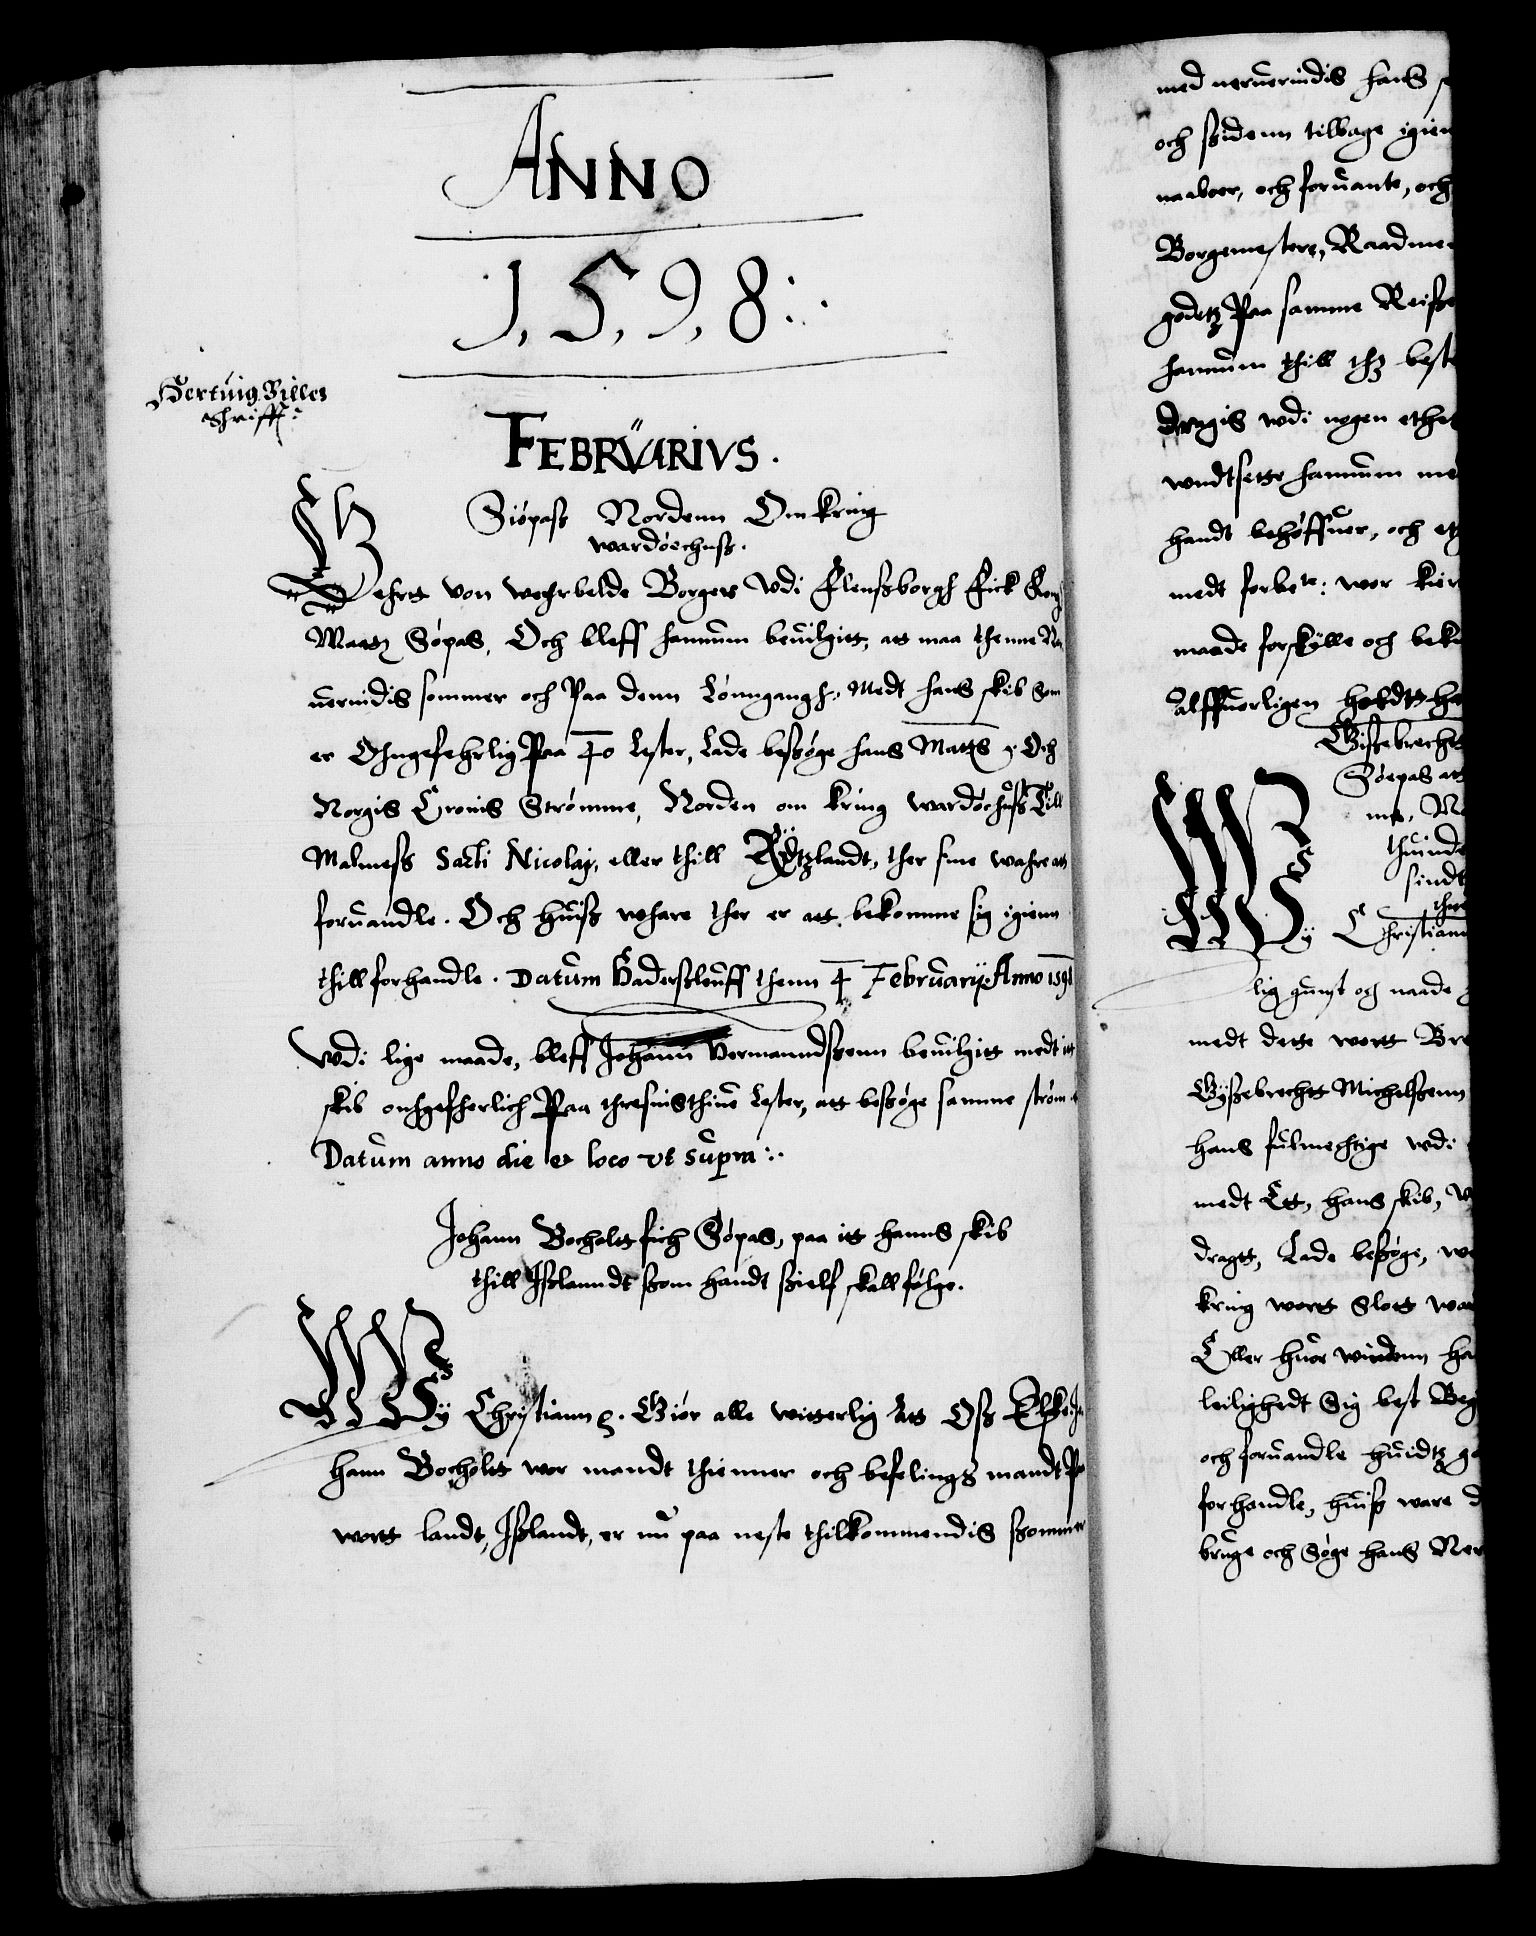 ANNO
1598
Hertuig Billes
Schrifft:
FEBRVARIVS.
Siöpasß Nordenn Omkring
wardöehuuß.
Gehrtt von wehrbelde Borger Vdi Flensßborgh Fick Kong
Mattz Söpas, Och bleff hannum beuilgitt, att maa thenne Ner
uerindis sommer och Paa denn Lönngangh, Medt hans skib som
er Ohngefehrlig Paa 40 Lester, Lade besßöge hans Matts och
Norgis Cronis Strömme, Norden om kring wardöehusß Till
Malmesß Sacti Nicolaj, eller thill Rÿdtzlandt, ther sine wahre att
foruandle. Och huisß wahre ther er att bekomme sig igienn
thill forhandle. Datum Hadersßleuff thenn 4 Februarij Anno 1598
Vdi lige maade, bleff Johann Hermanndsßenn beuilgitt medt itt
skib ohngeferlich Paa thresinsthiue Lester, att besßöge samme ström
Datum anno die et loco vt supra
Johann Bocholtt fich Söpas, paa itt hanns skib
thill Isßlanndt sßom handt sßielf skall fölge.
Wÿ Christiann z. Giör alle witterlig Att Osß Elskelig Jo
hann Bocholtt wor mandt thienner och befelings mandt Paa
wortt landt, Isßlandt, er nu paa neste thilkommendis sßommer
med neruerindis hans
och sßidenn tilbage igien
naaboer, och foruante, och
Borgemestere, Raadme
godtz Paa samme Reisße
hannum thill thz beste
dragis vdi nogen
vndtsette hannum me
handt behöffuer, och
medt forbe: wor
maade forskylle och beke
alffuerligen holdtz
Gisßebrecht
Söepas att
thuinde
sindt
Wÿ Christiann
lig gunst og naade
medt dette wortt Bre
Gÿsßebrechtt Michelsßenn
hans fulmechtige vdi
medt Ett, hans skib,
dragtt, Lade besßöge,
kring wortt Slott war
Eller huor
leilighedt Sig best Beg
och foruandle huidtz
forhandle, huisß ware
bruge och Söge hans Ner